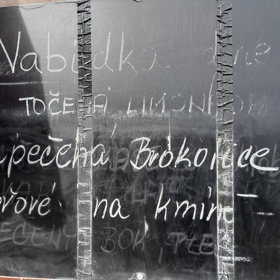 Nabídka dne
TOČENÁ LIMONÁDA
apečená Brokolice
řové na kmíně